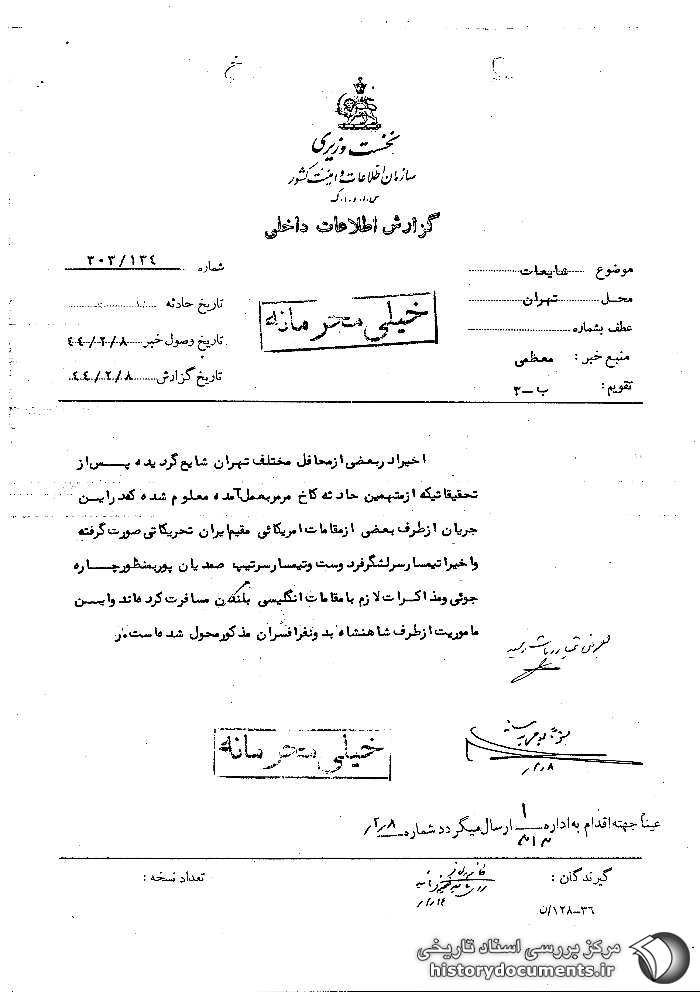 نخست وزیری
سازمان اطلاعات و امنیت کشور
س.ا.و.ا.ک
گزارش اطلاعات داخلی
موضوع شایعات
محل تهران
عطف بشماره
منبع خبر : معظمی
تقویم : ب-۳
شماره ۳۰۳/۱۳۴
تاریخ حادثه
تاریخ وصول خبر ۴۴/۲/۸
تاریخ گزارش ۴۴/۲/۸
خیلی محرمانه
اخیرا در بعضی از محافل مختلف تهران شایع گردیده پس از
تحقیقاتیکه از متهمین حادثه کاخ مرمر بعمل آمده معلوم شده که در این
جریان از طرف بعضی از مقامات امریکائی مقیم ایران تحریکاتی صورت گرفته
و اخیرا تیمسار سرلشگر فردوست و تیمسار سرتیپ صمدیان پور بمنظور چاره
جوئی و مذاکرات لازم با مقامات انگلیسی بلندن مسافرت کرده اند و این
ماموریت از طرف شاهنشاه بدو نفر افسران مذکور محول شده است.
بعرض تیمسار ریاست رسید
۲/۸
خیلی محرمانه
عیناً جهته اقدام به اداره ارسال میگردد شماره ۲/۸
گیرندگان :
تعداد نسخه :
۳۶-۱۲۸/ن
مرکز بررسی اسناد تاریخی
historydocuments.ir